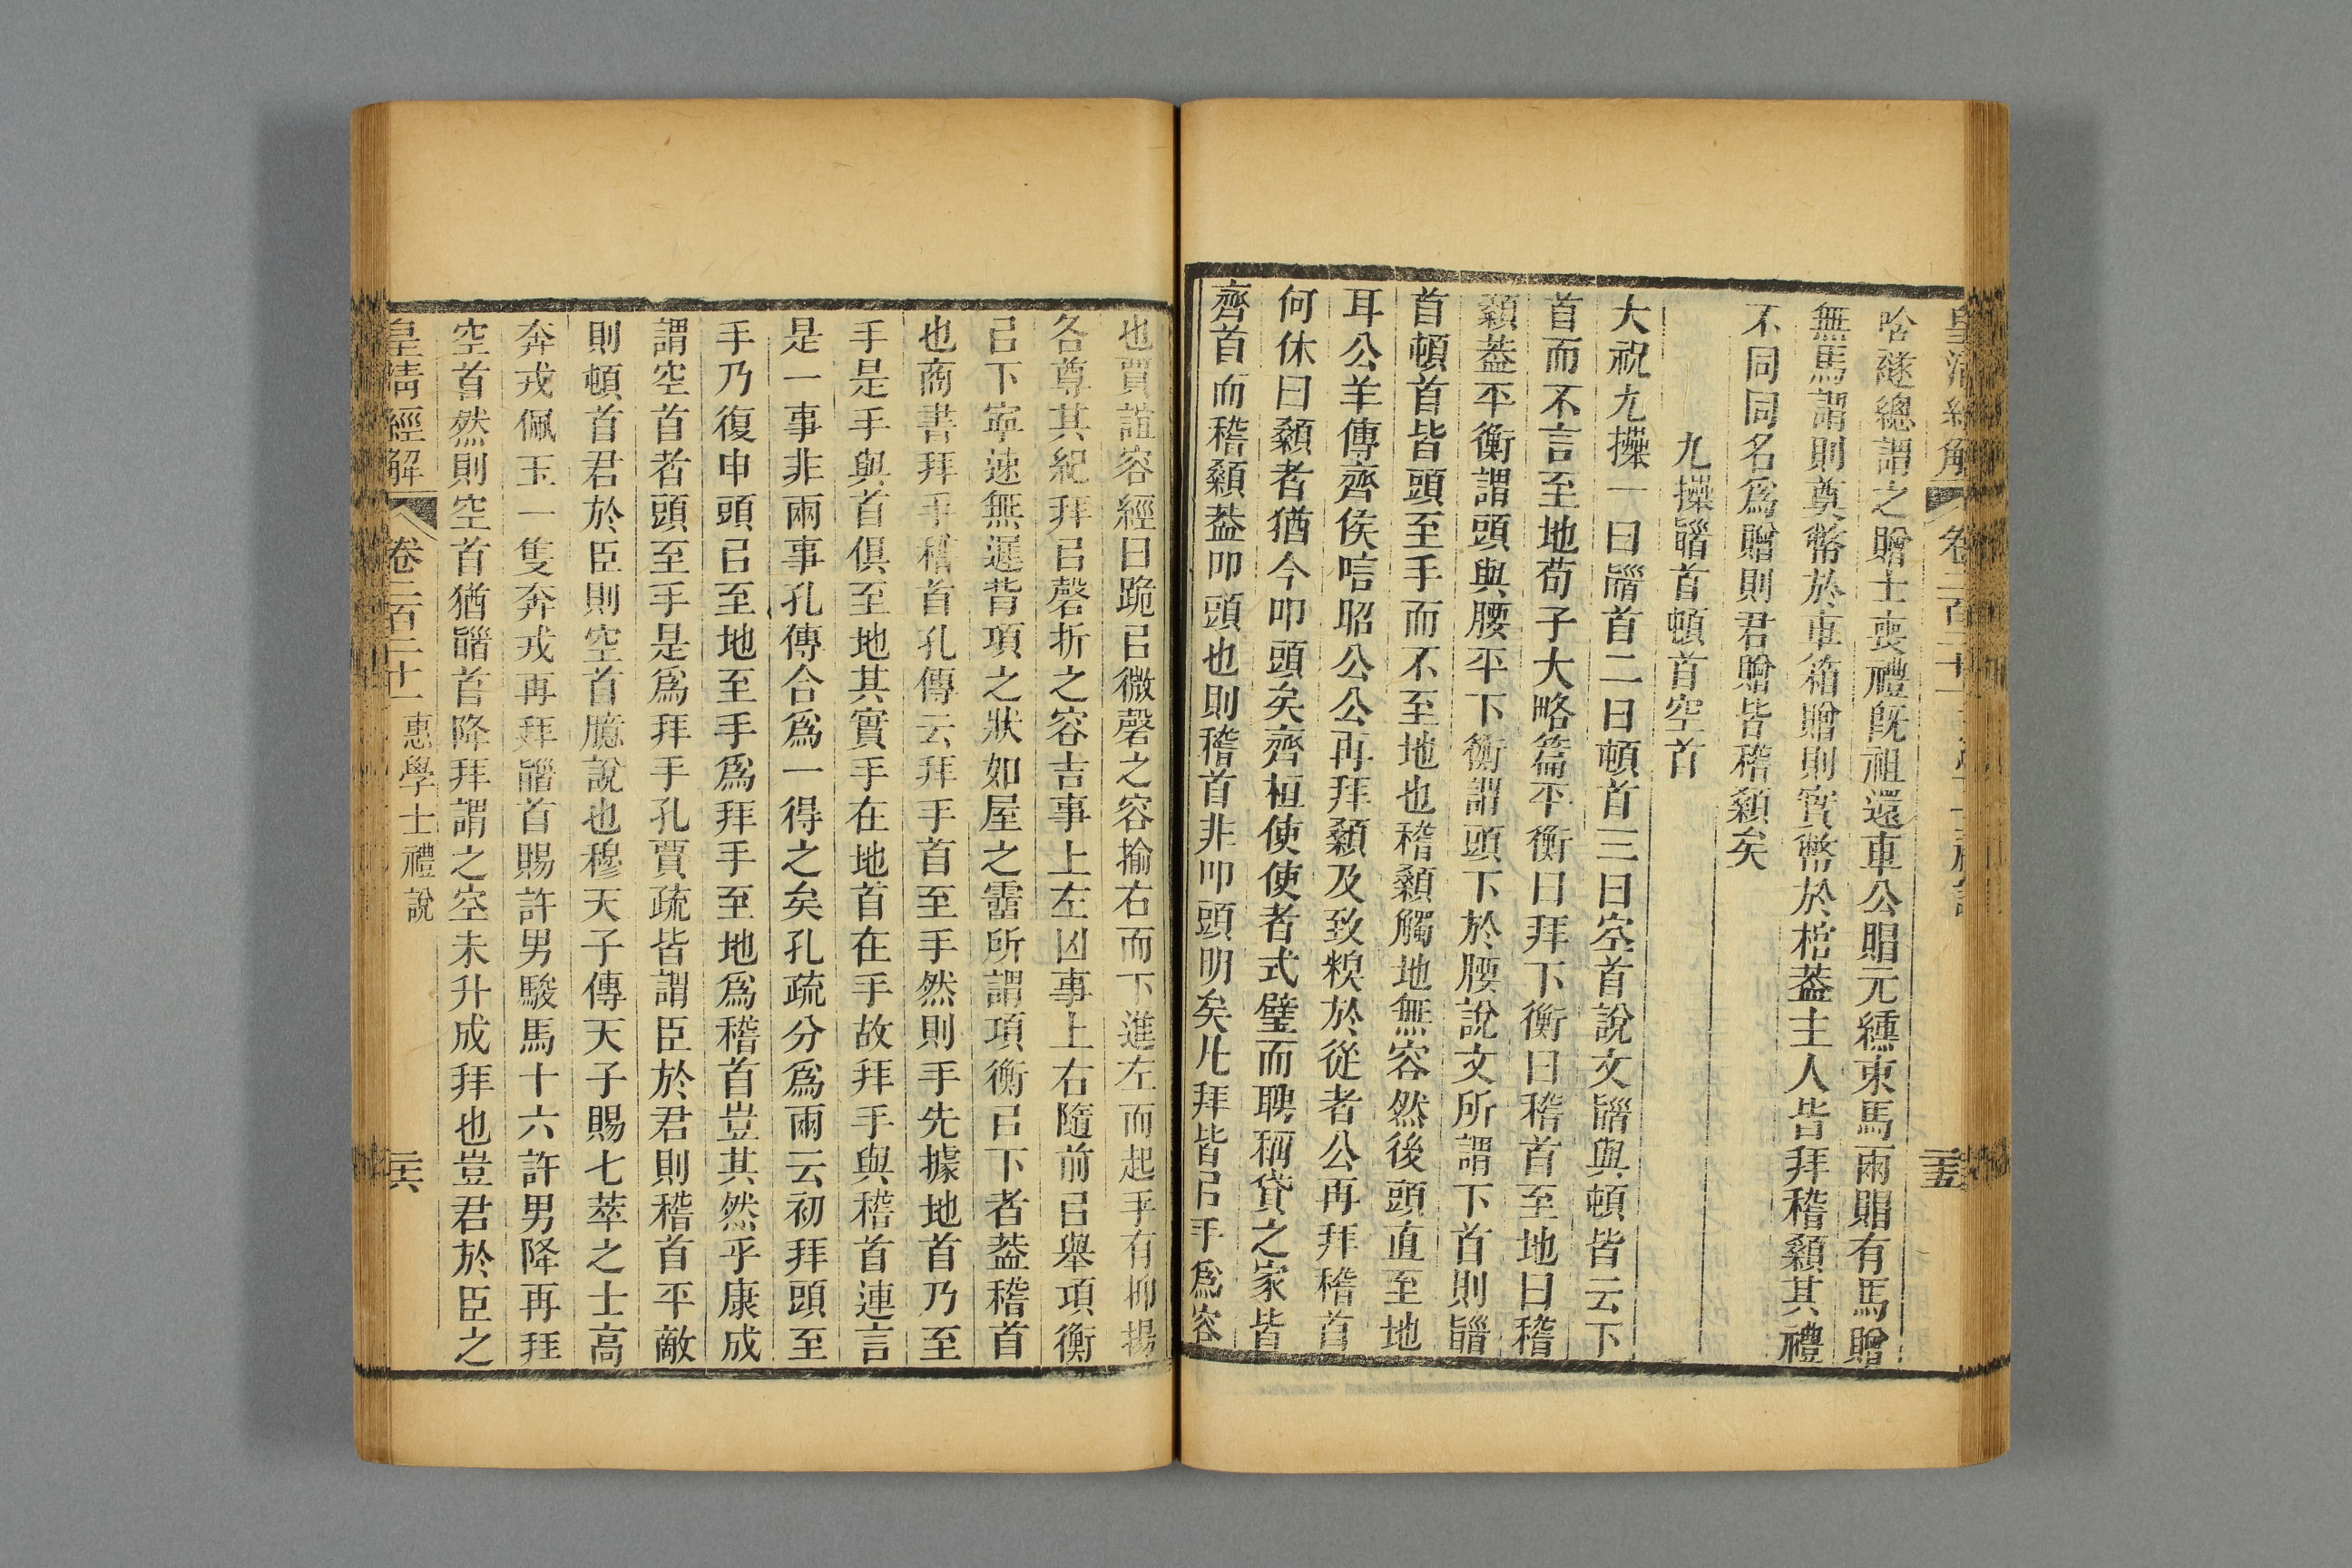 皇清經解 卷二百二十一
啥襚總謂之贈士喪禮旣祖還車公賵元纁束馬兩賵有馬贈
無馬謂則奠幣於車箱贈則實幣於棺葢主人皆拜稽顙其禮
不同同名爲贈則君贈皆稽顙矣
九𢷎䭫首頓首空首
大祝九𢷎一曰䭫首二曰頓首三曰空首說文䭫與頓皆云下
首而不言至地荀子大略篇平衡曰拜下衡曰稽首至地曰稽
顙葢平衡謂頭與腰平下衡謂頭下於腰說文所謂下首則䭫
首頓首皆頭至手而不至地也稽顙觸地無容然後頭直至地
耳公羊傳齊侯唁昭公公再拜顙及致糗於從者公再拜稽首
何休曰顙者猶今叩頭矣齊桓使使者式璧而聘稱貸之家皆
齊首而稽顙葢叩頭也則稽首非叩頭明矣凡拜皆㠯手爲容
二十五
也賈誼容經曰跪㠯微磬之容揄右而下進左而起手有抑揚
各尊其紀拜㠯磬折之容吉事上左凶事上右隨前㠯舉項衡
㠯下寜速無遲背項之狀如屋之霤所謂項衡㠯下者葢稽首
也商書拜手稽首孔傳云拜手首至手然則手先據地首乃至
手是手與首俱至地其實手在地首在手故拜手與稽首連言
是一事非兩事孔傳合爲一得之矣孔疏分爲兩云初拜頭至
手乃復申頭㠯至地至手爲拜手至地爲稽首豈其然乎康成
謂空首者頭至手是爲拜手孔賈疏皆謂臣於君則稽首平敵
則頓首君於臣則空首臆說也穆天子傳天子賜七萃之士高
奔戎佩玉一隻奔戎再拜䭫首賜許男駿馬十六許男降再拜
空首然則空首猶䭫首降拜謂之空未升成拜也豈君於臣之
皇清經解 卷二百二十一 惠學士禮說 二十六